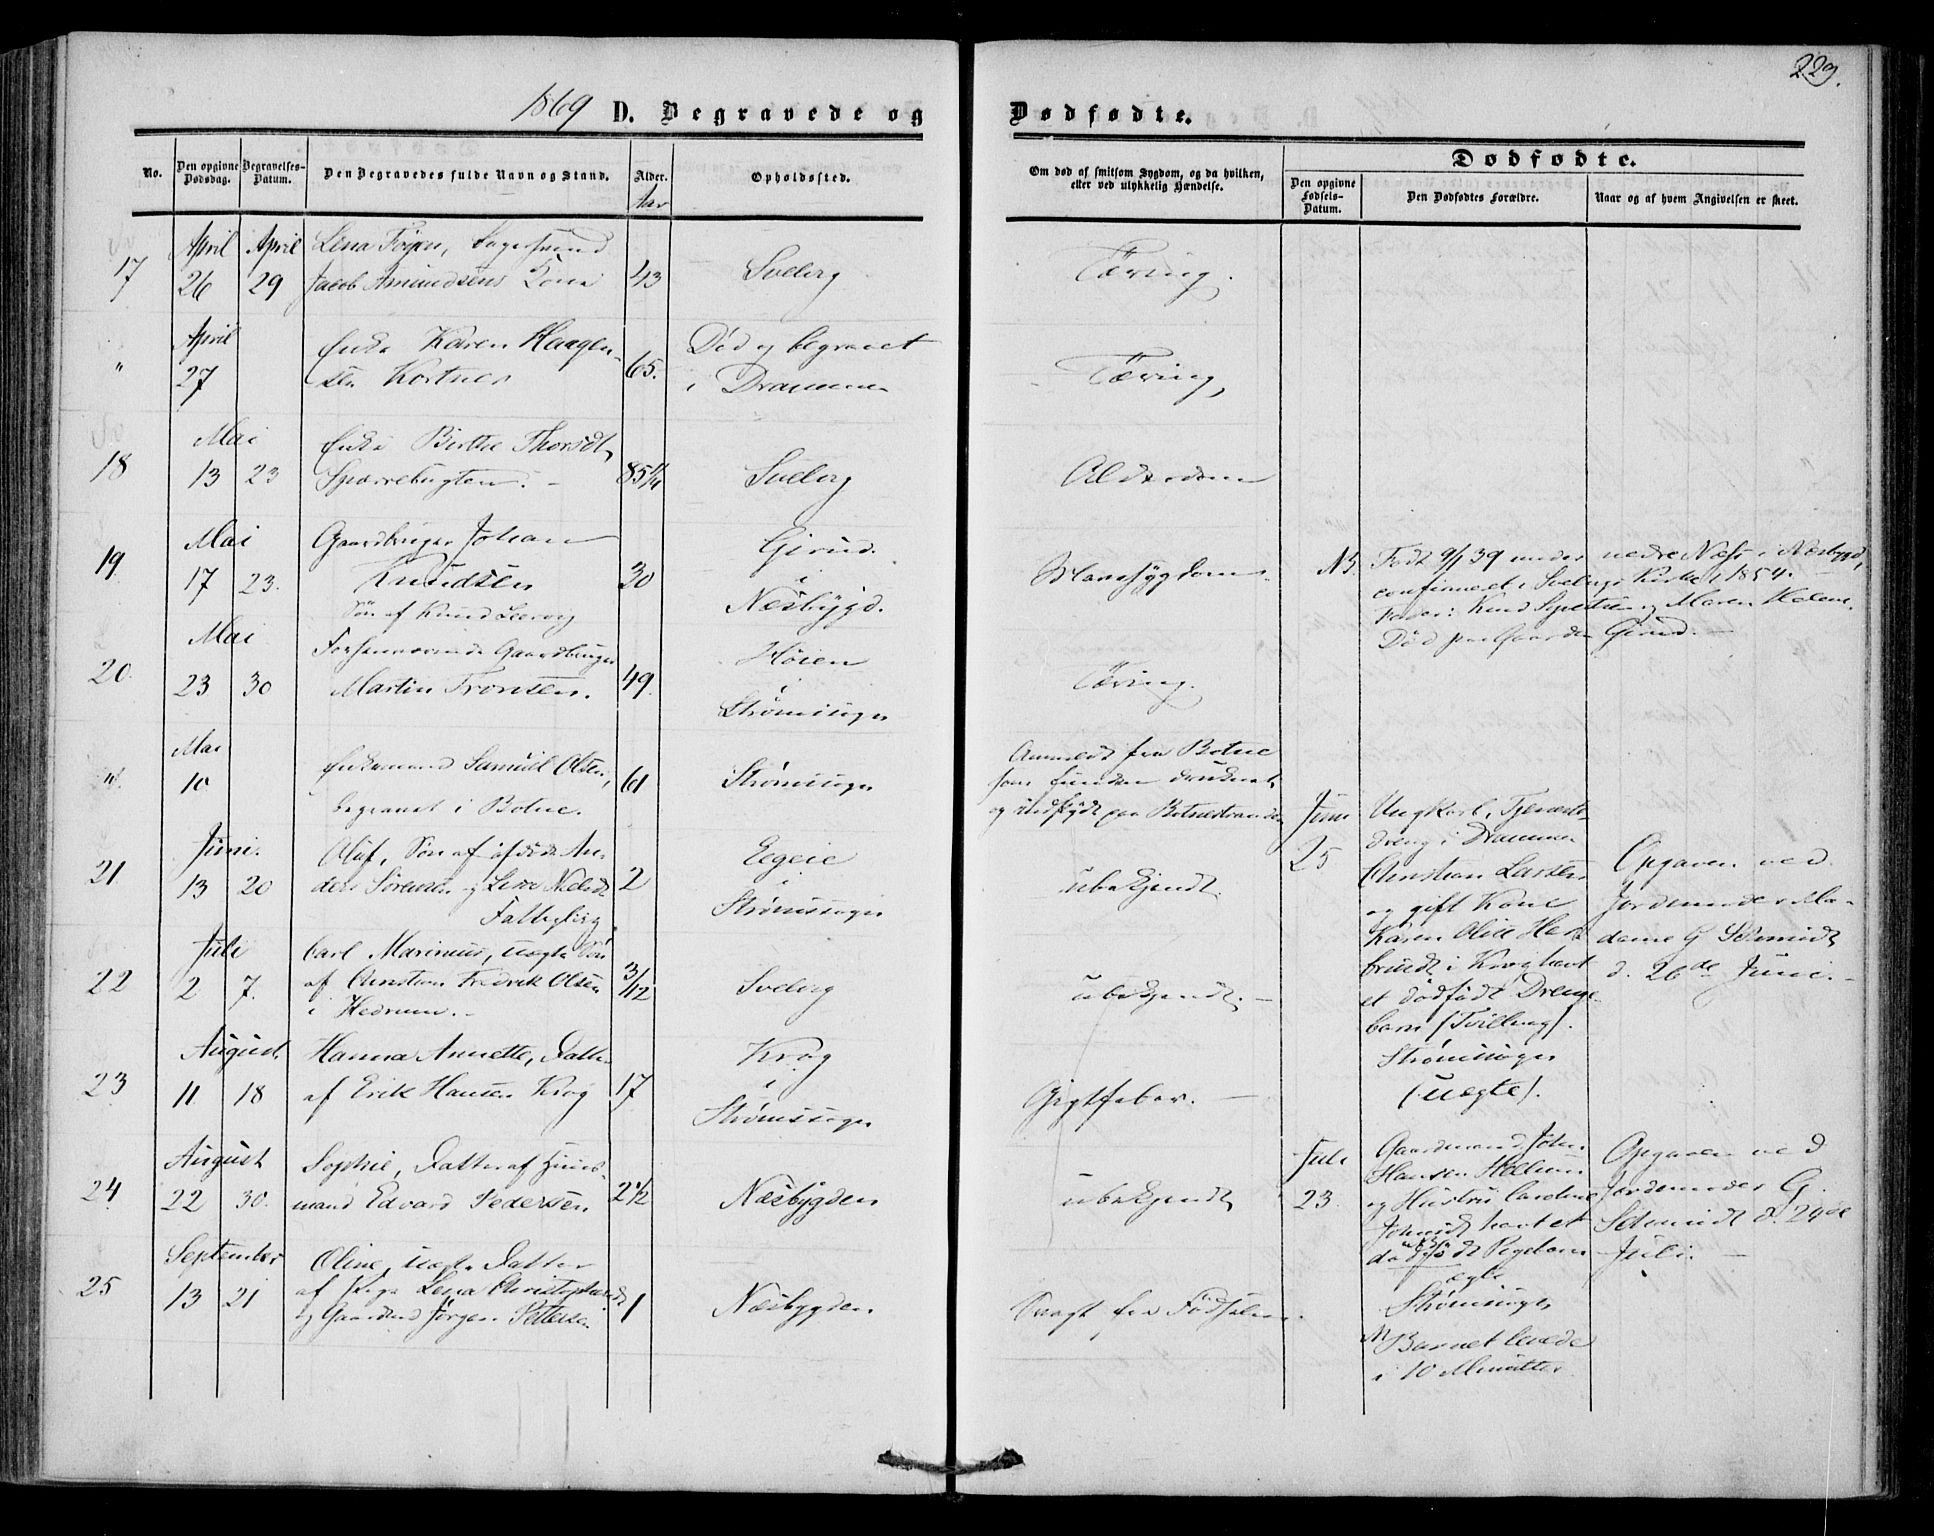 229.
1869 D. Begravede og Dødfødte.
No.
Den opgivne Dødsdag.
Begravelses-Datum.
Den Begravedes fulde Navn og Stand.
Alder.
Aar
Opholdssted.
Om død af smitsom Sygdom, og da hvilken,
eller ved ulykkelig Hændelse.
Dødfødte.
Den opgivne Fødsels-Datum.
Den Dødfødtes Forældre.
Naar og af hvem Angivelsen er skeet.
17
April April
26 29
Lena
Jacob Amundsens Kone
43
Svelvig
Tæring.
"
April
27
Enke Karen Haagen-
sen Kortnes
65.
Død og begravet
i Drammen
Tæring,
18
Mai
13 23
Enke Birthe Thorsdt,
Sparrebugten. -
85 1/4
Svelvig
Alderdom
19
Mai
17 23.
Gaardbruger Johan
Knudsen
Søn af Knud
30
Girud.
i
Næsbygd.
NB. Født 9/1 39 under nedre Næss i Næsbygd,
confirmeret i Svelvigs Kirke i 1854.
Fader: Knud og Maren Helene.
Død paa Gaarden Girud. -
20.
Mai
23 30
Forhenværende Gaardbruger
Martin Tronsen.
49.
Høien
i
Strømssogn
Tæring.
"
Mai
10
Enkemand Samuel Olsen,
begravet i Botne.
61
Strømssogn
Anmeldt fra Botne
som funden druknet
og inddrydt paa Botnestranden
21
Juni.
13 20
Oluf, Søn af afdøde An-
ders Sørensen og Lene Nielsdt
2
Eegeie
i
Strømssogn
ubekjendt.
Juni
25
Ungkarl, Tjeneste-
dreng i Drammen
Christian Larsen
og gift Kone
Karen Olise Hel-
brindt i Krog havt
et dødfødt Drenge-
barn (Tvilling).
Strømssogn
(uægte).
Opgaven ved
Jordemoder Ma-
dame G Schmidt
d. 26de Juni. -
22
Juli
2 7.
Carl Marinus, uægte Søn
af Christian Fredrik Olsen
i Hedrum. -
3/12
Svelvig
ubekjendt. -
23
August
11 18
Hanna Annette, Datter
af Erik Hansen Krog
17
Krog
i
Strømssogn
Gigtfeber. -
24
August
22 30.
Sophie, Datter af Huus-
mand Edvard Pedersen
2 1/2
Næsbygden
ubekjendt
Juli
23.
Gaardmand John
Hansen Hellum
og Hustru Caroline
Johnsdt havt et
Pigebarn
ægte
Strømssogn
Barnet levede
i 10 Minutter
Opgaven ved
Jordemoder G.
Schmidt d. 24de
Juli. -
25
September
13 21
Oline, uægte Datter
af Pige Lena Christophersdt
og Jørgen Pettersen
1
Næsbygden
Svagt fra Fødselen.